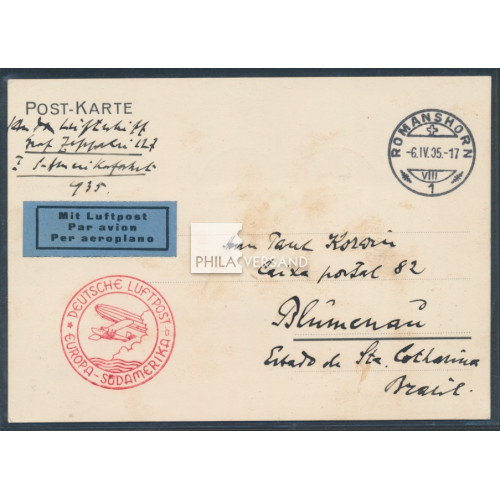 POST-KARTE
Von dem Luftschiff
Graf Zeppelin
I Südamerikafahrt
1935.
Mit Luftpost
Par avion
Per aeroplano
ROMANSHORN
-6.IV.35.-17
VIII
1
Paul
PHILA VERSAND
Caixa postal 82
Blumenau
Estado de Sta. Catharina
Brasil.
* DEUTSCHE LUFTPOST b
EUROPA-SÜDAMERIKA